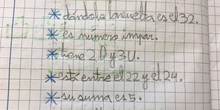 * dándole la vuelta es el 32.
* es número impar.
* tiene 2D y 3U.
* está entre el 22 y el 24.
* su suma es 5.